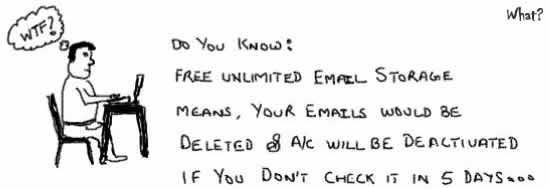 What?
WTF?
DO YOU KNOW:
FREE UNLIMITED EMAIL STORAGE
MEANS, YOUR EMAILS WOULD BE
DELETED & A/C WILL BE DEACTIVATED
IF YOU DON'T CHECK IT IN 5 DAYS...